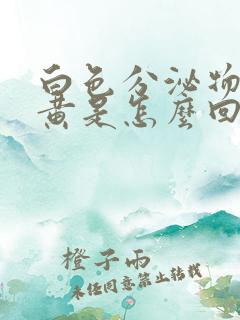 白色分泌物
黄是怎麼回
橙子雨
未经同意禁止转载